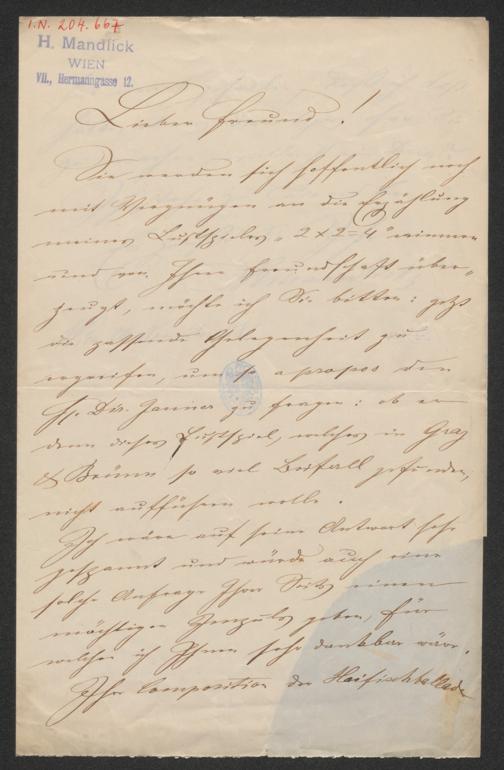 I.N. 204.667
H. Mandlick
WIEN
VII., Hermanngasse 12.
Lieber Freund!
Sie werden sich hoffentlich noch
mit Vergnügen an die Erzählung
meines Lustspieles „2 x 2 = 4" erinnern
und von Ihrer Freundschaft über-
zeugt, möchte ich Sie bitten: jetzt
die passende Gelegenheit zu
ergreifen, um so a propos den
H. Dir. Janner zu fragen: ob er
denn dieses Lustspiel, welches in Graz
& Brünn so viel Beifall gefunden,
nicht aufführen wolle.
Ich wäre auf seine Antwort sehr
gespannt und würde auch eine
solche Anfrage Ihrer Seits einen
mächtigen Impuls geben, für
welchen ich Ihnen sehr dankbar wäre.
Ihre Composition der Haifischballade